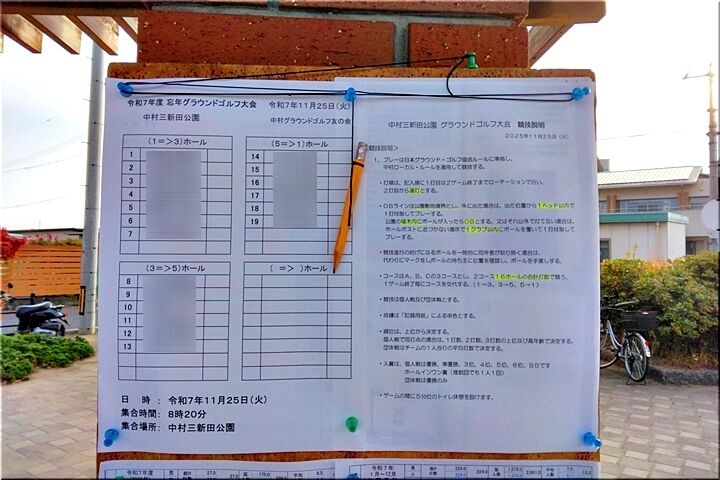 令和7年度 忘年グラウンドゴルフ大会 令和7年11月25日(火)
中村三新田公園 中村グラウンドゴルフ友の会
(1=>3)ホール
1
2
3
4
5
6
7
(5=>1)ホール
14
15
16
17
18
19
(3=>5)ホール
8
9
10
11
12
13
( => )ホール
日 時: 令和7年11月25日(火)
集合時間: 8時20分
集合場所: 中村三新田公園
中村三新田公園 グラウンドゴルフ大会 競技説明
2025年11月25日(火)
競技説明>
1、プレーは日本グラウンド・ゴルフ協会ルールに準拠し、
中村ローカル・ルールを適用して競技する。
・打順は、記入順に1打目は2ゲーム終了までローテーションで行い、
2打目から遠打とする。
・OBラインは公園敷地境界とし、外に出た場合は、出た位置から1ヘッド以内で
1打付加してプレーする。
公園の植木内にボールが入ったらOBとする。又はそれ以外で打てない場合は、
ホールポストに近づかない場所で1クラブ以内にボールを置いて1打付加して
プレーする。
・競技進行の妨げになるボールを一時的に同伴者が取り除く場合は、
代わりにマークをしボールの持ち主に位置を確認し、ボールを手渡しする。
・コースはA、B、Cの3コースとし、2コース16ホールの合計打数で競う。
1ゲーム終了毎にコースを交代する。(1→3、3→5、5→1)
・競技は個人戦及び団体戦とする。
・成績は「記録用紙」による申告とする。
・順位は、上位から決定する。
個人戦で同打点の場合は、1打数、2打数、3打数の上位及び高年齢で決定する。
団体戦はチームの1人当りの平均打数で決定する。
・入賞は、個人戦は優勝、準優勝、3位、4位、5位、6位、BBです
ホールインワン賞(複数回でも1人1回)
団体戦は優勝のみ
・ゲームの間に5分位のトイレ休憩を設けます。
令和7年度
令和7年
1月～12月